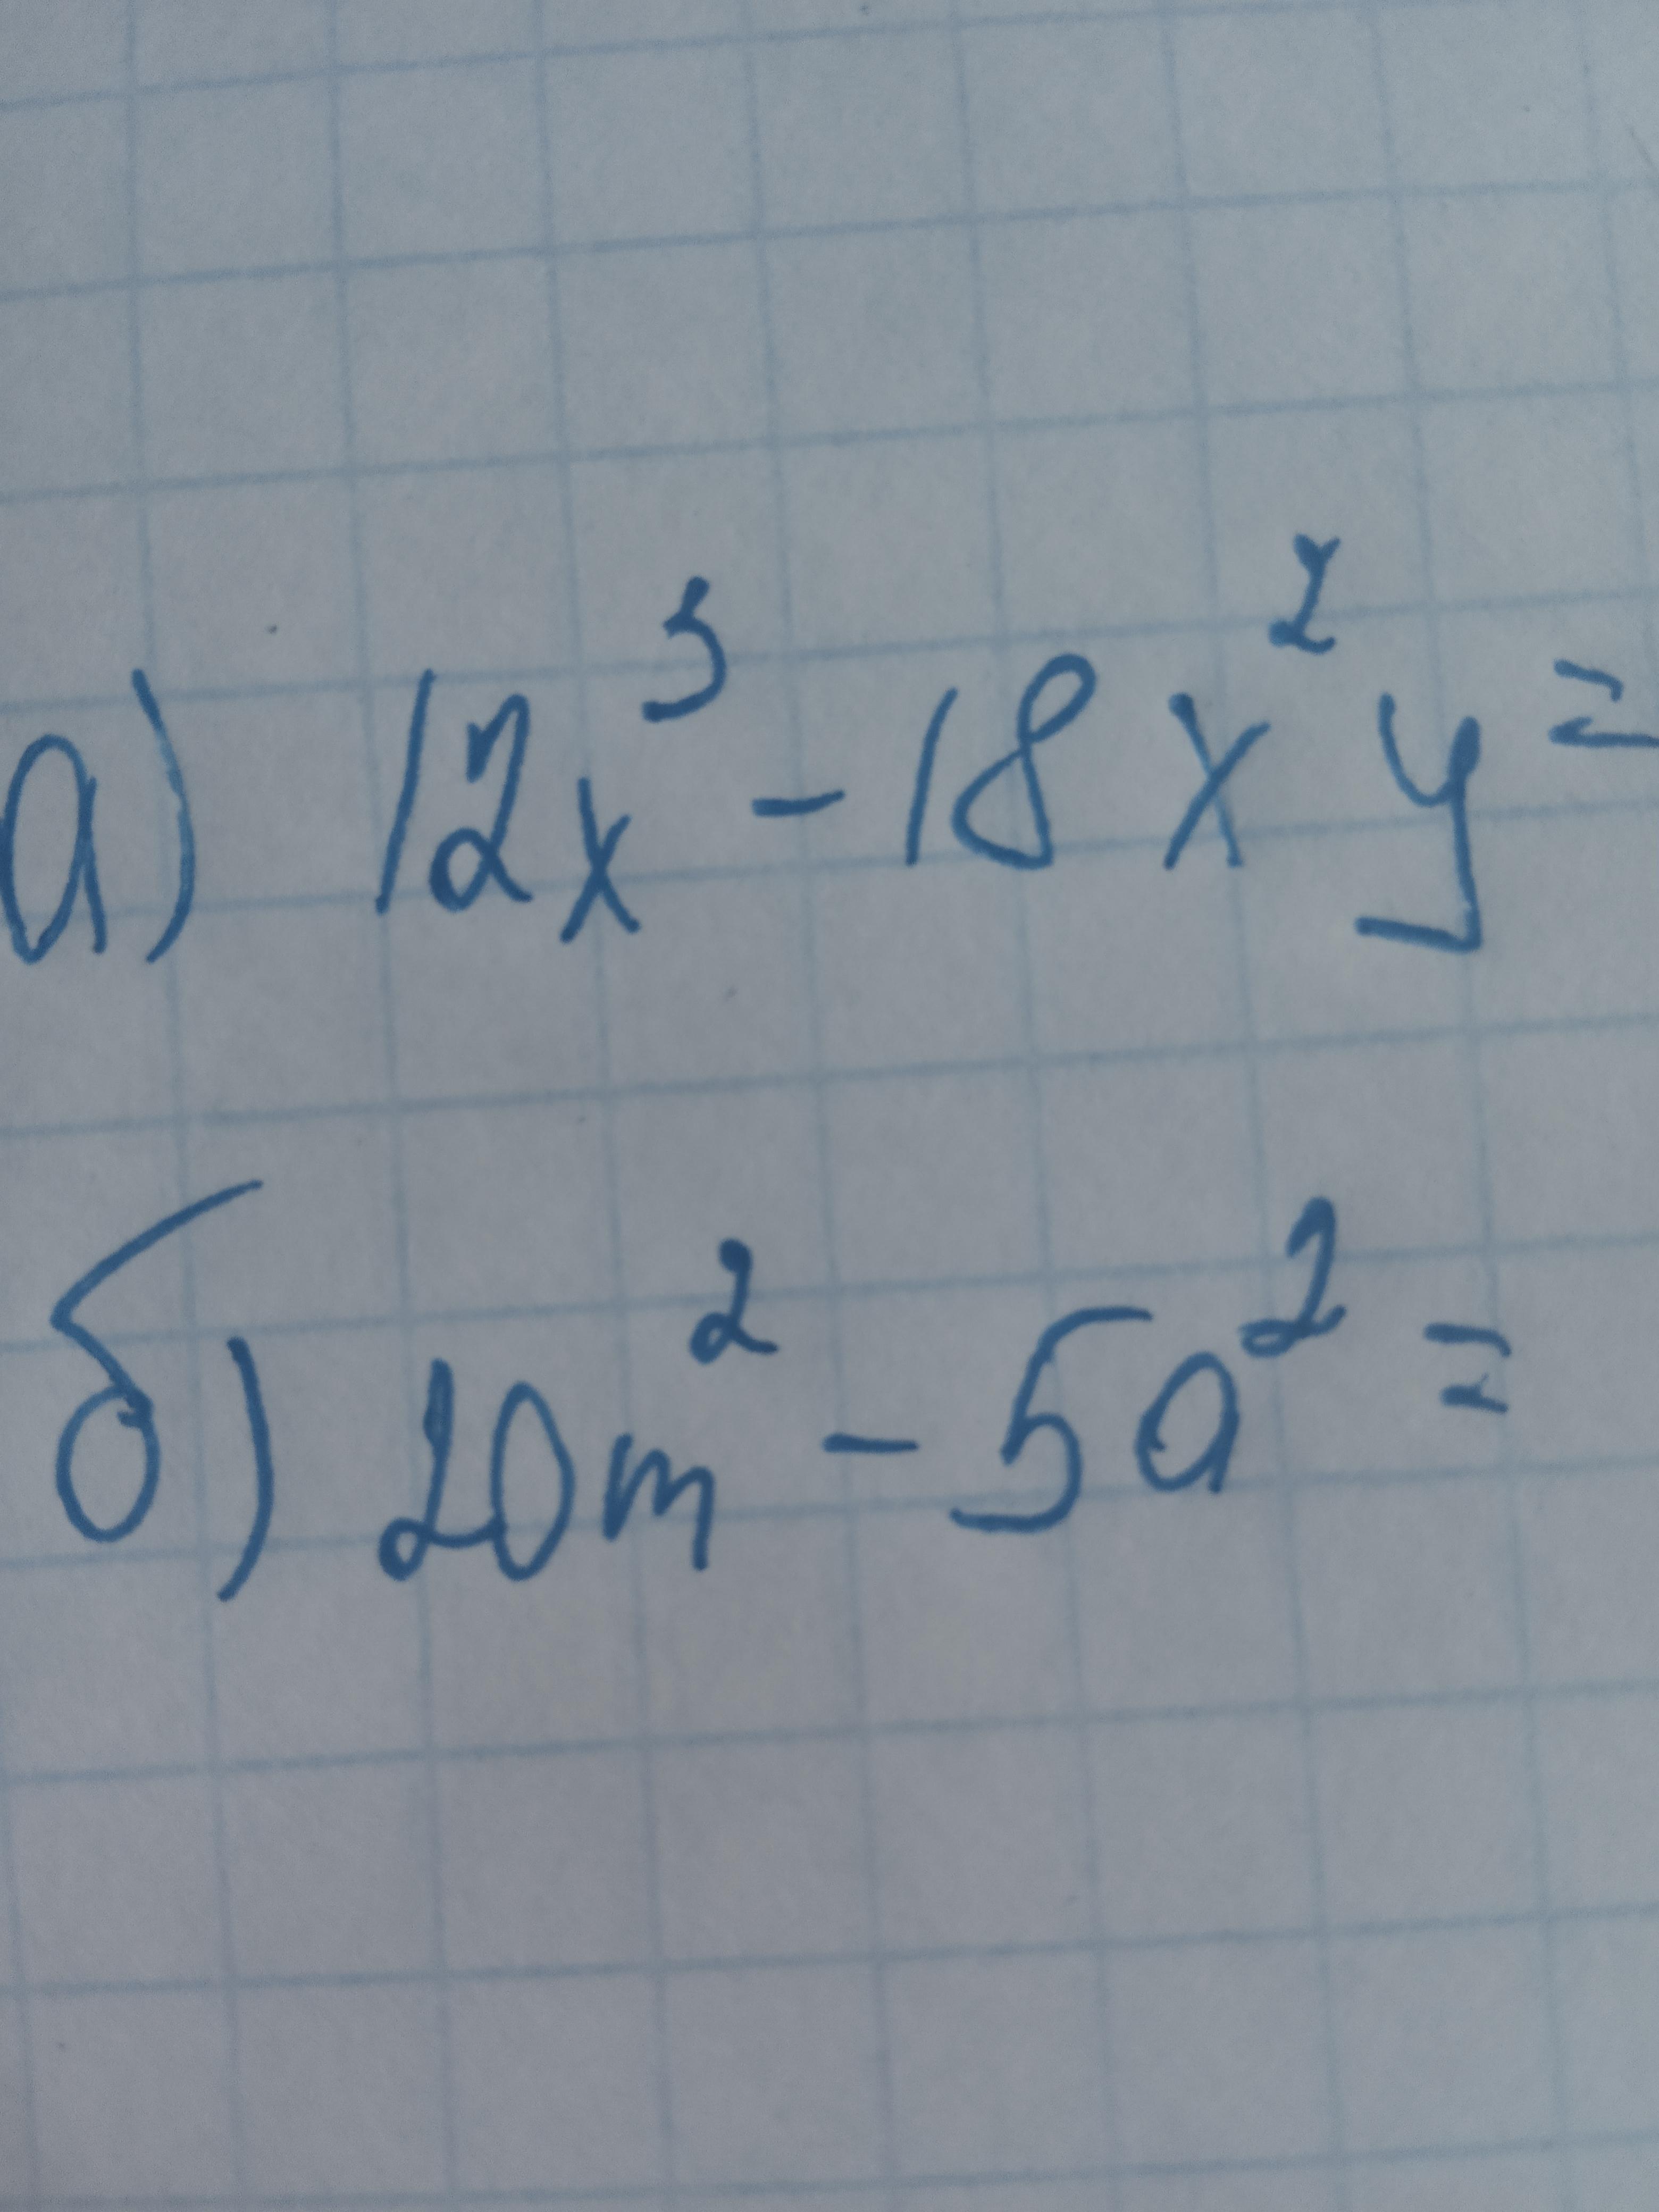 а) 12x³ - 18x²y =
б) 20m² - 5a² =